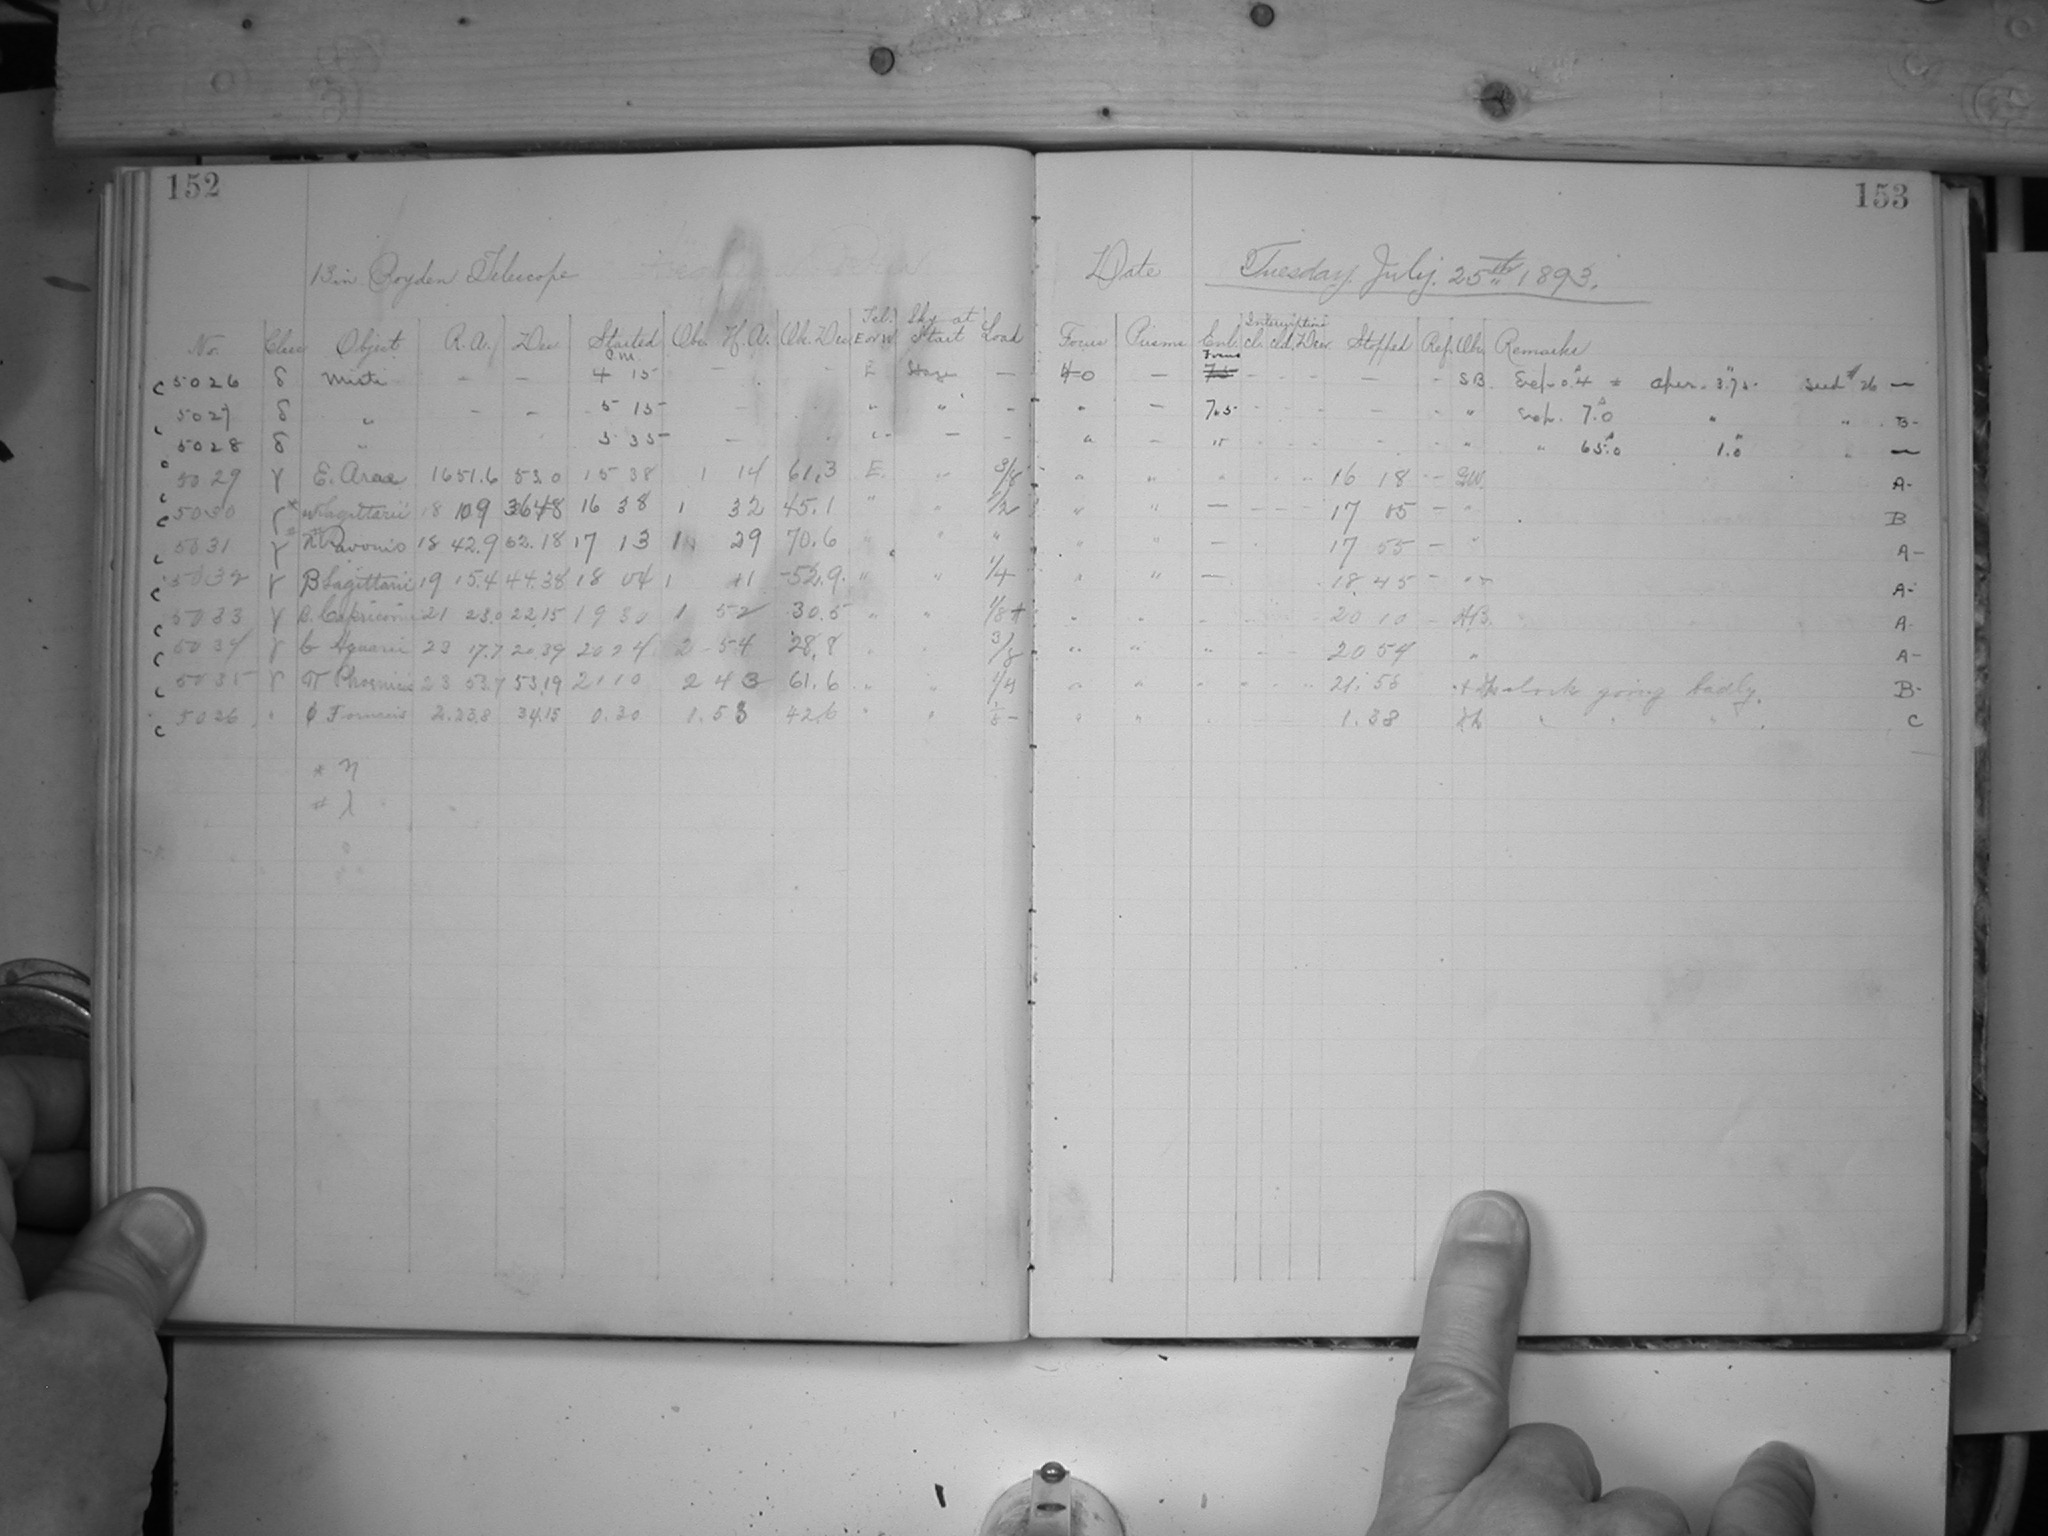 152
13 in Boyden Telescope
No. Class Object R.A. Dec Started Obs. H.A. Ob. Dec Tel. E or W Sky at Start Load
c 5026 δ Misti - - 4 15 - - E Haze -
c 5027 δ " - - 5 15 - - " " -
5028 δ " - 5 35 - - " - -
5029 γ E. Arae 16 51.6 53.0 15 38 1 14 61.3 E. " 3/8
c 5030 γ* Sagittarii 18 10.9 36 48 16 38 1 32 45.1 " " 1/2
c 5031 γ Pavonis 18 42.9 62.18 17 13 1 29 70.6 " " "
c 5032 γ β Sagittarii 19 15.4 44.38 18 04 1 11 -52.9 " " 1/4
c 5033 γ Capricorni 21 23.0 22.15 19 30 1 52 30.5 " " 1/8+
c 5034 γ Aquarii 23 17.7 20.39 20 24 2 54 28.8 " " 3/8
c 5035 γ π Phoenicis 23 53.7 53.19 21 10 2 43 61.6 " " 1/4
c 5036 " Fornacis 2.23.8 34.15 0.30 1.53 42.6 " "
* η
# λ
153
Date Tuesday. July. 25th 1893.
Focus Prisms Enl. Interruptions Cl. Cld. Driv. Stopped Ref. Obs. Remarks
40 - - - S.B. Exp. 0.4 * Aper. 3.75 Seed # 26 -
" - 7.5 - - " Exp. 7.0 " " B-
" - " - - " " 65.0 1.0 " -
" " " 16 18 - A-
" " - 17 05 - " B
" " - 17 55 - " A-
" " - 18.45 - " A-
" " 20 10 - A-
" " " 20 54 " A-
" " " 21.56 clock going badly. B-
" " 1.38 " " " C